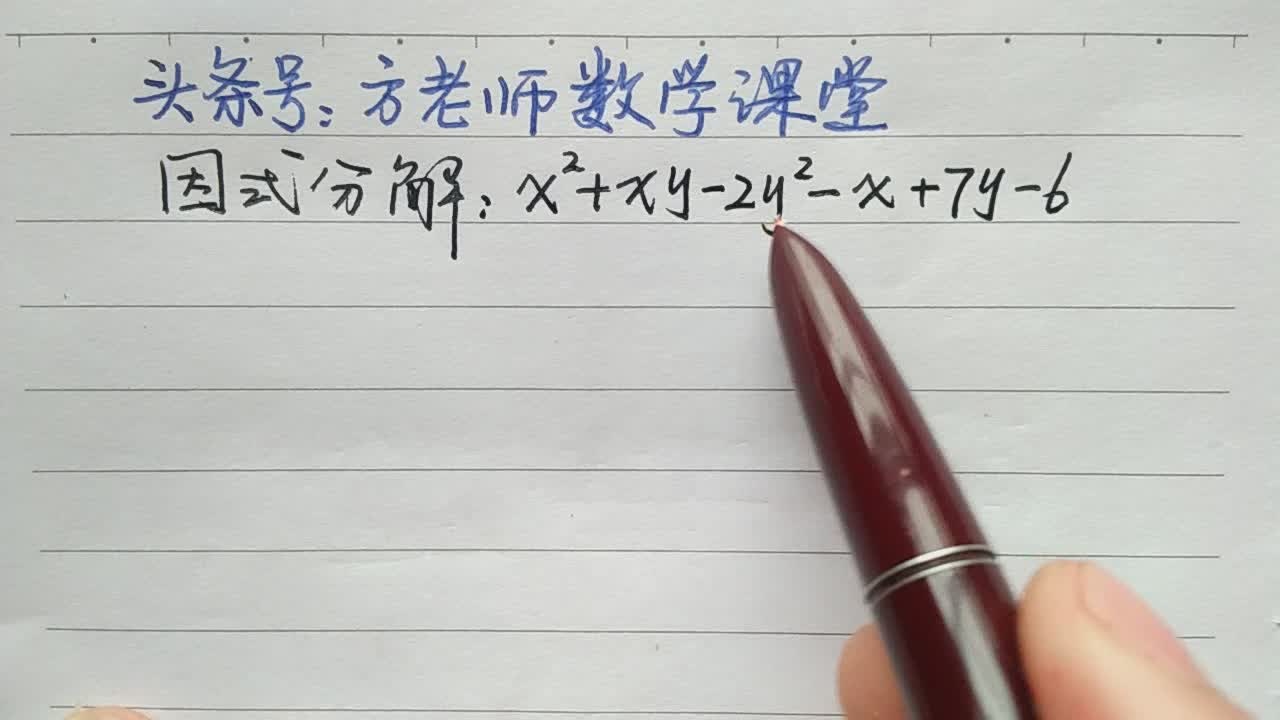 头条号：方老师数学课堂
因式分解：x²+xy-2y²-x+7y-6